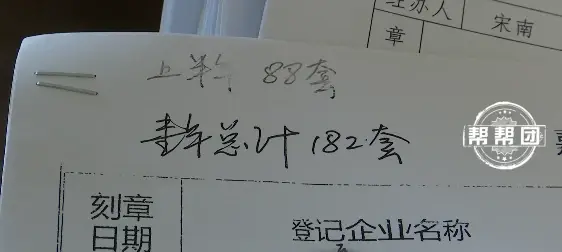 经办人
宋南
章
上半年 88套
全年总计 182套
帮帮团
刻章
日期
登记企业名称